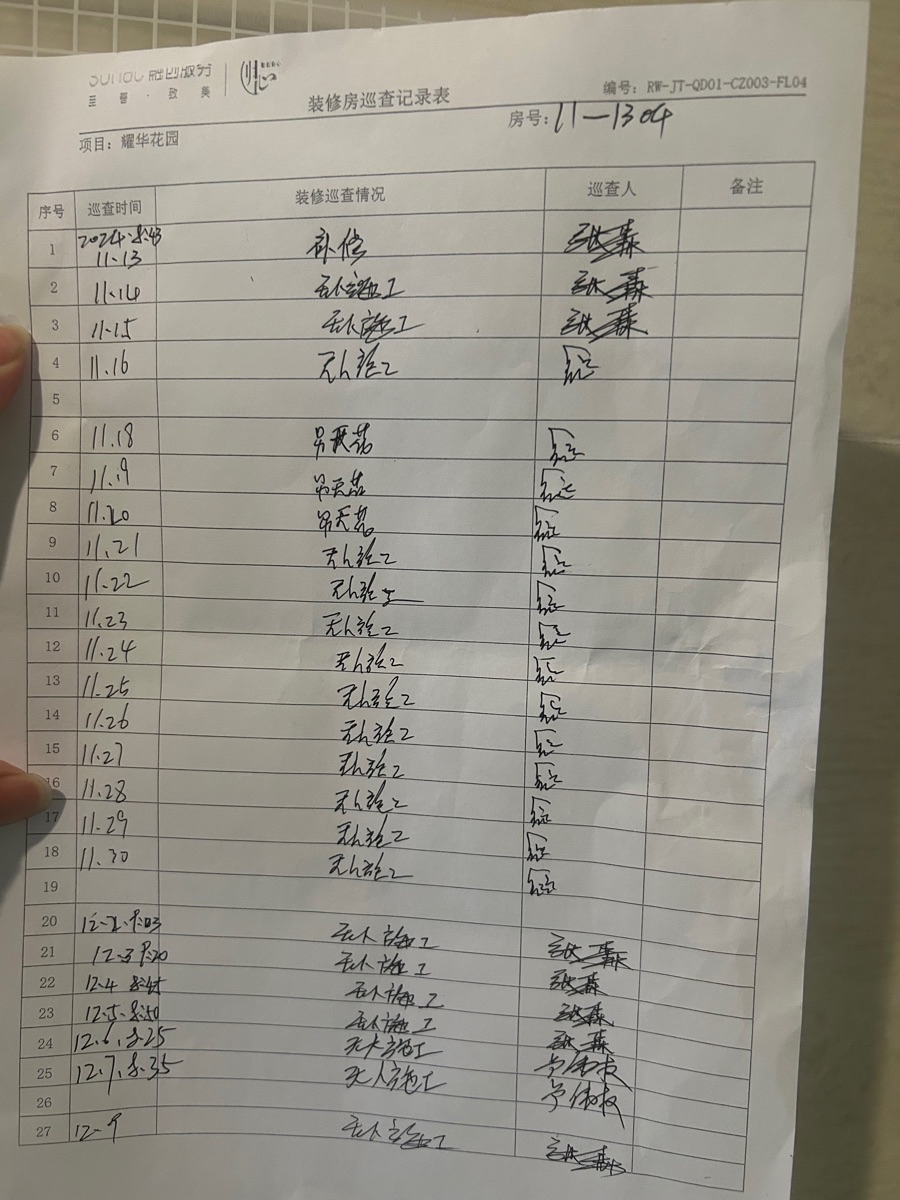 融创服务
至善·致美
归心
编号：RW-JT-QD01-CZ003-FL04
装修房巡查记录表
项目：耀华花园
房号：11-1304
序号 巡查时间 装修巡查情况 巡查人 备注
1 2024.8:43 11.13 张森
2 11.14 无人施工 张森
3 11.15 无人施工 张森
4 11.16 无人施工
5
6 11.18 吊天花
7 11.19 吊天花
8 11.20 吊天花
9 11.21 无人施工
10 11.22 无人施工
11 11.23 无人施工
12 11.24 无人施工
13 11.25 无人施工
14 11.26 无人施工
15 11.27 无人施工
16 11.28 无人施工
17 11.29 无人施工
18 11.30 无人施工
19
20 12-2. 无人施工 张森
21 12-3 无人施工 张森
22 12.4 8:45 无人施工 张森
23 12.5.8:50 无人施工 张森
24 12.6.8.25 无人施工
25 12.7.8.35 无人施工
26
27 12-9 无人施工 张森